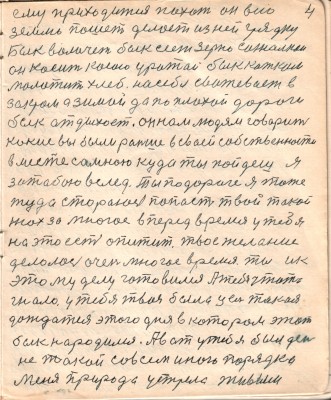 4
ему приходится пахот он всю
землю пашет делает из ней грядку
Бык волочет бык сеет зерно сажалкой
он косит косою урожай бык катком
молотит хлеб. на себе сваживает в
закром а зимой да по плохой дороги
бык отдыхает. он нам людям говорит
какие вы были раньше в своей собственности
вместе самною куда ты пойдеш я
за тобою вслед. Ты подороге я тоже
туда стораюсь попаст твой такой
на это есть опитит. твое желание
делалос очен многое время. ты к
этому делу готовился А тебя
гнало. у тебя твоя была цел такая
дождатся этого дня в котором этот
бык народился. А вот у тебя был ден
не такой совсем иного порядка
меня природа устроила живым